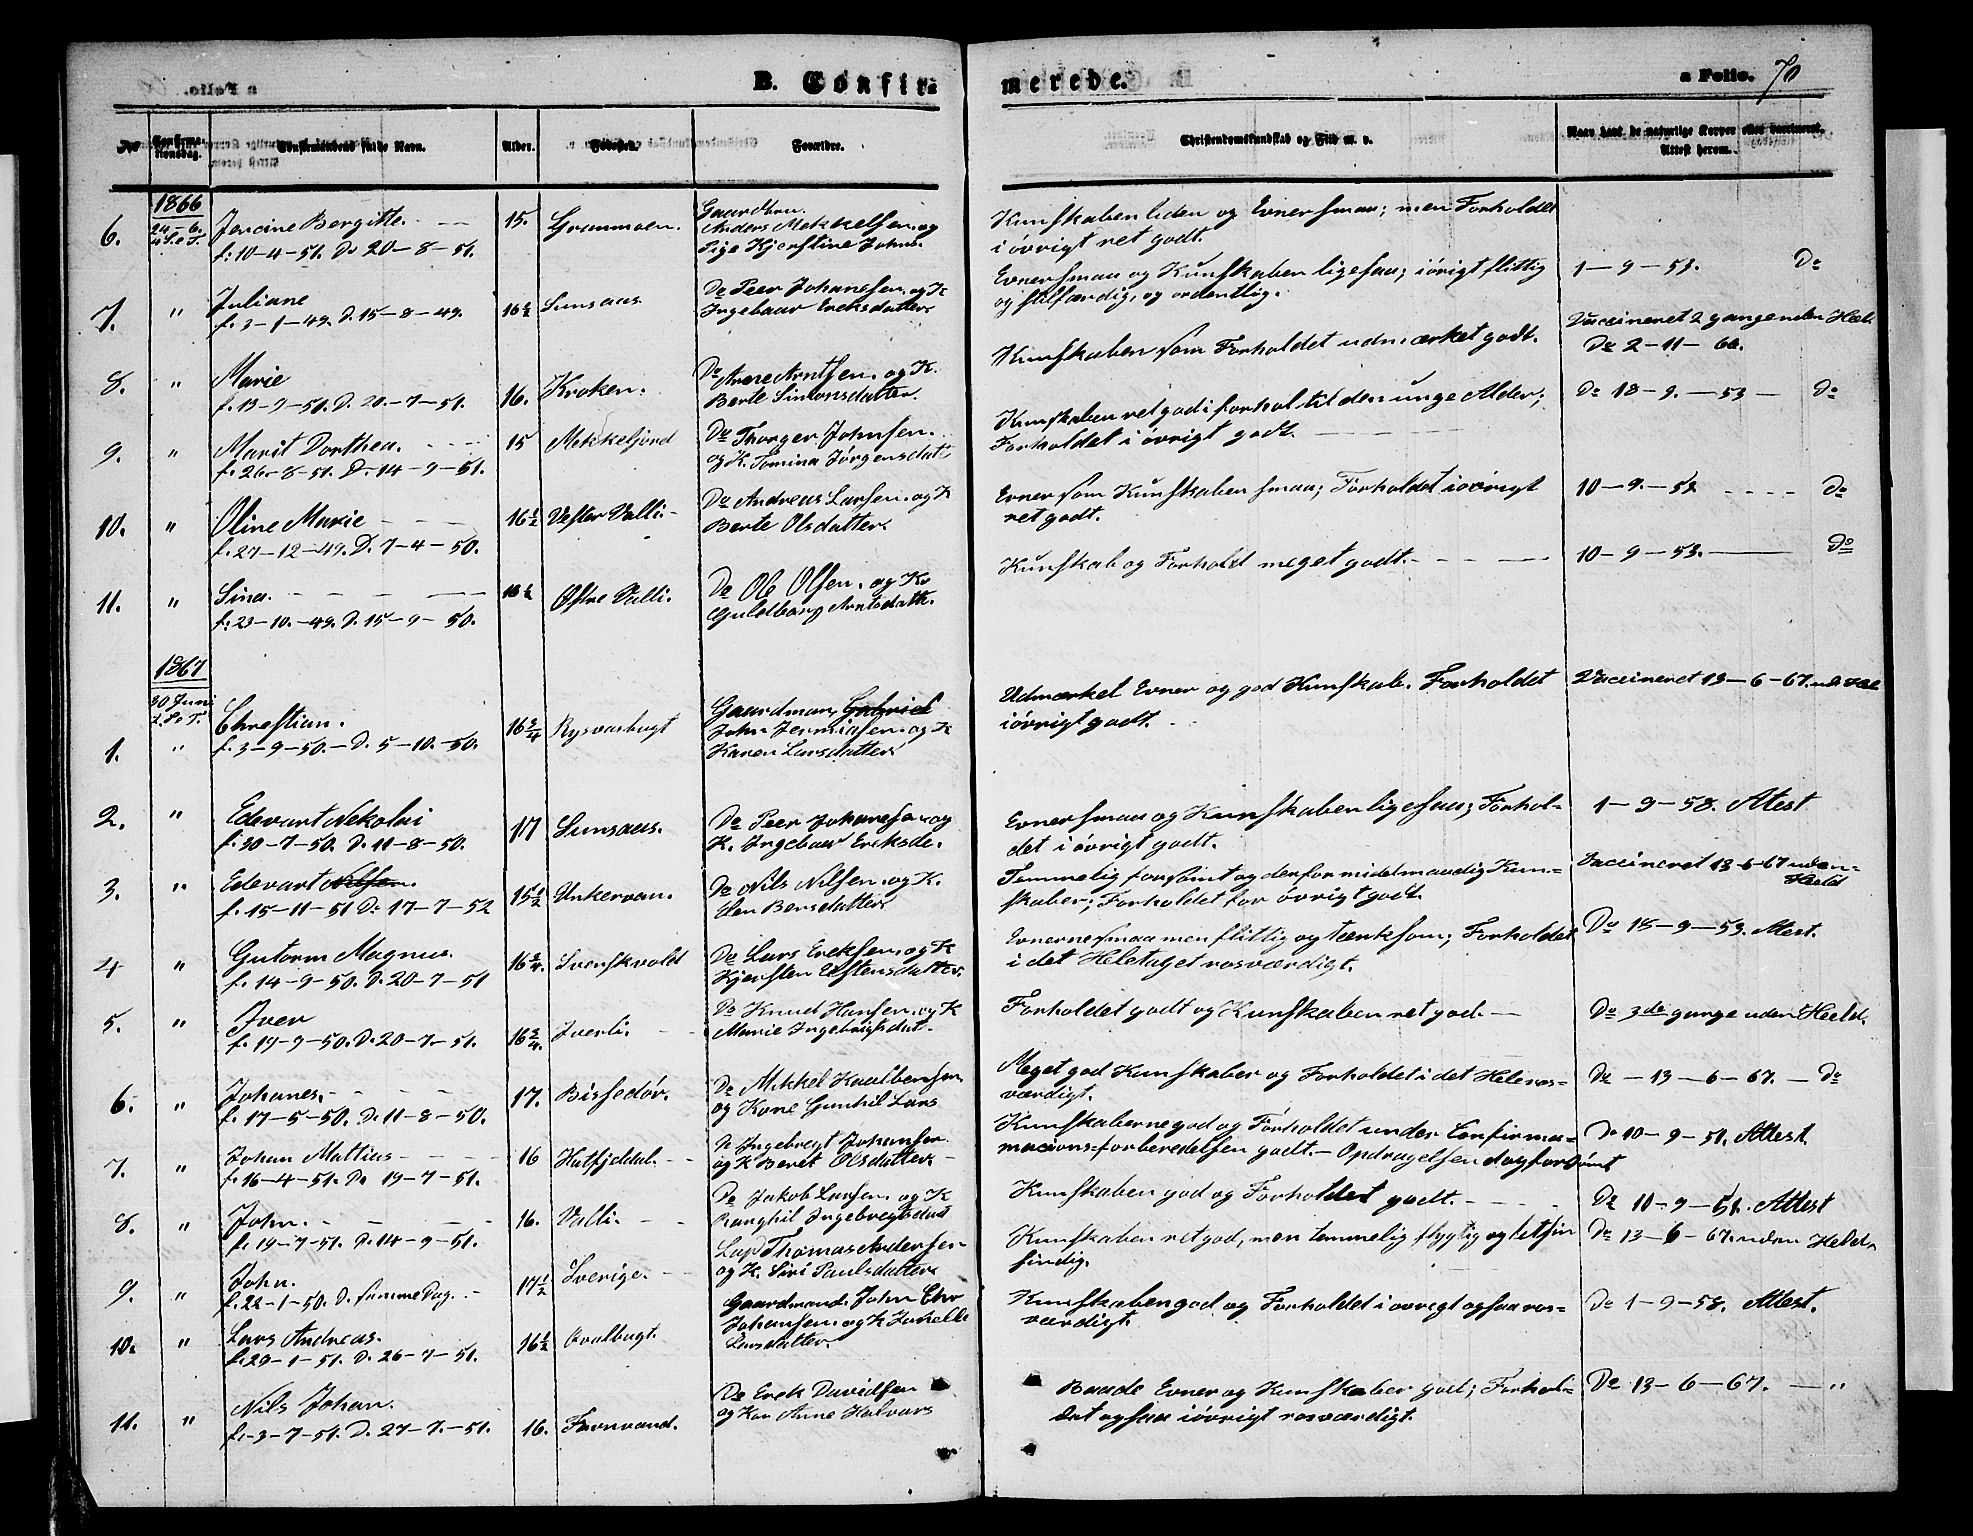 B. Confir-
merede.
a Folio. 70
No
Confirma-
tionsdag.
Confirmandens fulde Navn.
Alder.
Fødested.
Forældre.
Christendomskundskab og Flid m. v.
Naar havt de naturlige Kopper eller vaccineret.
Attest herom.
1866
24-6.
6. Bergitte. 15. Grannmoen.
f: 10-4-51. Do 20-8-51.
Gaardbru.
Anders Mekkelsen og
Kunskaben liden og Evner smaa; men Forholdet
i øvrigt ret godt.
7. " Juliane 16½ Sunsaas
f. 3-1-49. D. 15-8-49.
Do Peer Johanesen og K
Ingebaar Ereksdatter.
Evner smaa og Kunskaben ligesaa; i øvrigt flittig
og stilfærdig, og ordentlig.
1-9-53. Do
8. " Marie 16. Kroken.
f. 13-9-50. D. 20-7-51.
Do Arne Arntsen. og K.
Berte Simonsdatter.
Kunskaben som Forholdet udmærket godt.
Vaccineret 2 gange uden Held
Do 2-11-60.
9. " Marit Dorthea. 15 Mekkeljord
f. 26-8-51. D. 14-9-51.
Do Thorger Johnsen.
og K. Tomina Jørgensdat
Kunskaben ret god i forhol til den unge Alder;
Forholdet i øvrigt godt.
Do 18-9.-53- Do
10. " Oline Marie 16½ Vester Valli-
f. 27-12-49. D. 7-4-50.
Do Andreas Larsen. og K
Berte Olsdatter.
Evner som Kunskaben smaa; Forholdet i øvrigt
ret godt.
10-9.-53 Do
11. " Sina. Østre Valli.
f: 23-10.-49. D. 15-9-50.
Do Ole Olsen. og K
Guldborg Arntsdatt.
Kunskab og Forhold meget godt.
10-9-53. Do
1867
30 Juni
1. " Chrestian. 16¾
f. 3-9-50.-D. 5-10.-50.
Gaardman Gabriel
John Jermiasen. og K
Karen Larsdatter.
Udmærket Evner og god Kunskab. Forholdet
i øvrigt godt.
Vaccineret 13-6-67.
2. " Edevart Nekolai 17 Sunsaas.
f. 20-7-50. D. 11-8-50.
Do Peer Johanesen og
K. Ingebaar Ereksd.
Evner smaa og Kunskaben ligesaa; Forhol-
det i øvrigt godt.
1-9-58. Atest
3. " Edevart Nilsen. 15½ Unkervan.
f. 15-11-51 Do 17-7-52
Do Nils Nilsen. og K.
Elen Bensdatter
Temmelig forsømt og derfor midelmaadig Kun-
skaber; Forholdet for øvrigt godt.
Vaccineret 13-6-67 uden
Held
4 " Gutorm Magnus. 16¾. Svenskvold
f. 14-9-50. D. 20-7-51
Do Lars Ereksen. og K
Kjersten Elstensdatter.
Evnerne smaa men flittig og tænksom; Forholdet
i det Heletaget rosværdigt.
Do 18-9-53. Atest.
5. " Iver 16¾. Iverli.
f. 19-9-50. D. 20-7.-51.
Do Knud Hansen. og K
Marie Ingebrigtsdat.
Forholdet godt og Kunskaben ret god.
Do 3de gange uden Held.
6. " Johanes. 17. Bissedør.
f. 17-5-50. D. 11-8-50.
Do Mikkel Kaalbensen
og Kone Gunhil Lars
Meget god Kunskaber og Forholdet i det Hele ros-
værdigt.
Do-13-6-67.-Do
7. " Johan Mattias 16 Hatfjeddal.
f. 16-4-51. Do 19-7-51.
Do Ingebregt Johansen
og K Beret Olsdatter.
Kunskaberne god og Forholdet under Confirma-
macionsforberedelsen godt.-Opdragelsen dog forsømt
Do 10-9-51. Attest.
8. " John. 16. Valli.
f. 19-7-51. D. 14-9-51.
Do Jakob Larsen og K
Ranghil Ingebregtsdat
Kunskaben god og Forholdet godt.
Do 10-9-51. Attest
9. " John. 17½ Sverige.
f. 22-1-50. D. samme Dag.
Lap Thomas Andersen
og K. Siri Paulsdatter
Kunskaben ret god, men temmelig flygtig og letsin
sindig.
Do 13-6-67. uden Held.
10. " Lars Andreas. 16½
f. 29-1-51. D. 26-7-51.
Gaardmand. John Chr
Johansen og K
Larsdatter.
Kunskaben god og Forholdet i øvrigt ogsaa ros-
værdigt.
Do 1-9-58. Attest.
11. " Nils Johan. 16. Famvand.
f.-3-7-51. D. 27-7.-51.
Do Erek Davidsen
og Kon Anne Halvors
Baade Evner og Kunskaber god; Forhol-
det ogsaa i øvrigt rosværdigt.
Do 13-6-67. - "